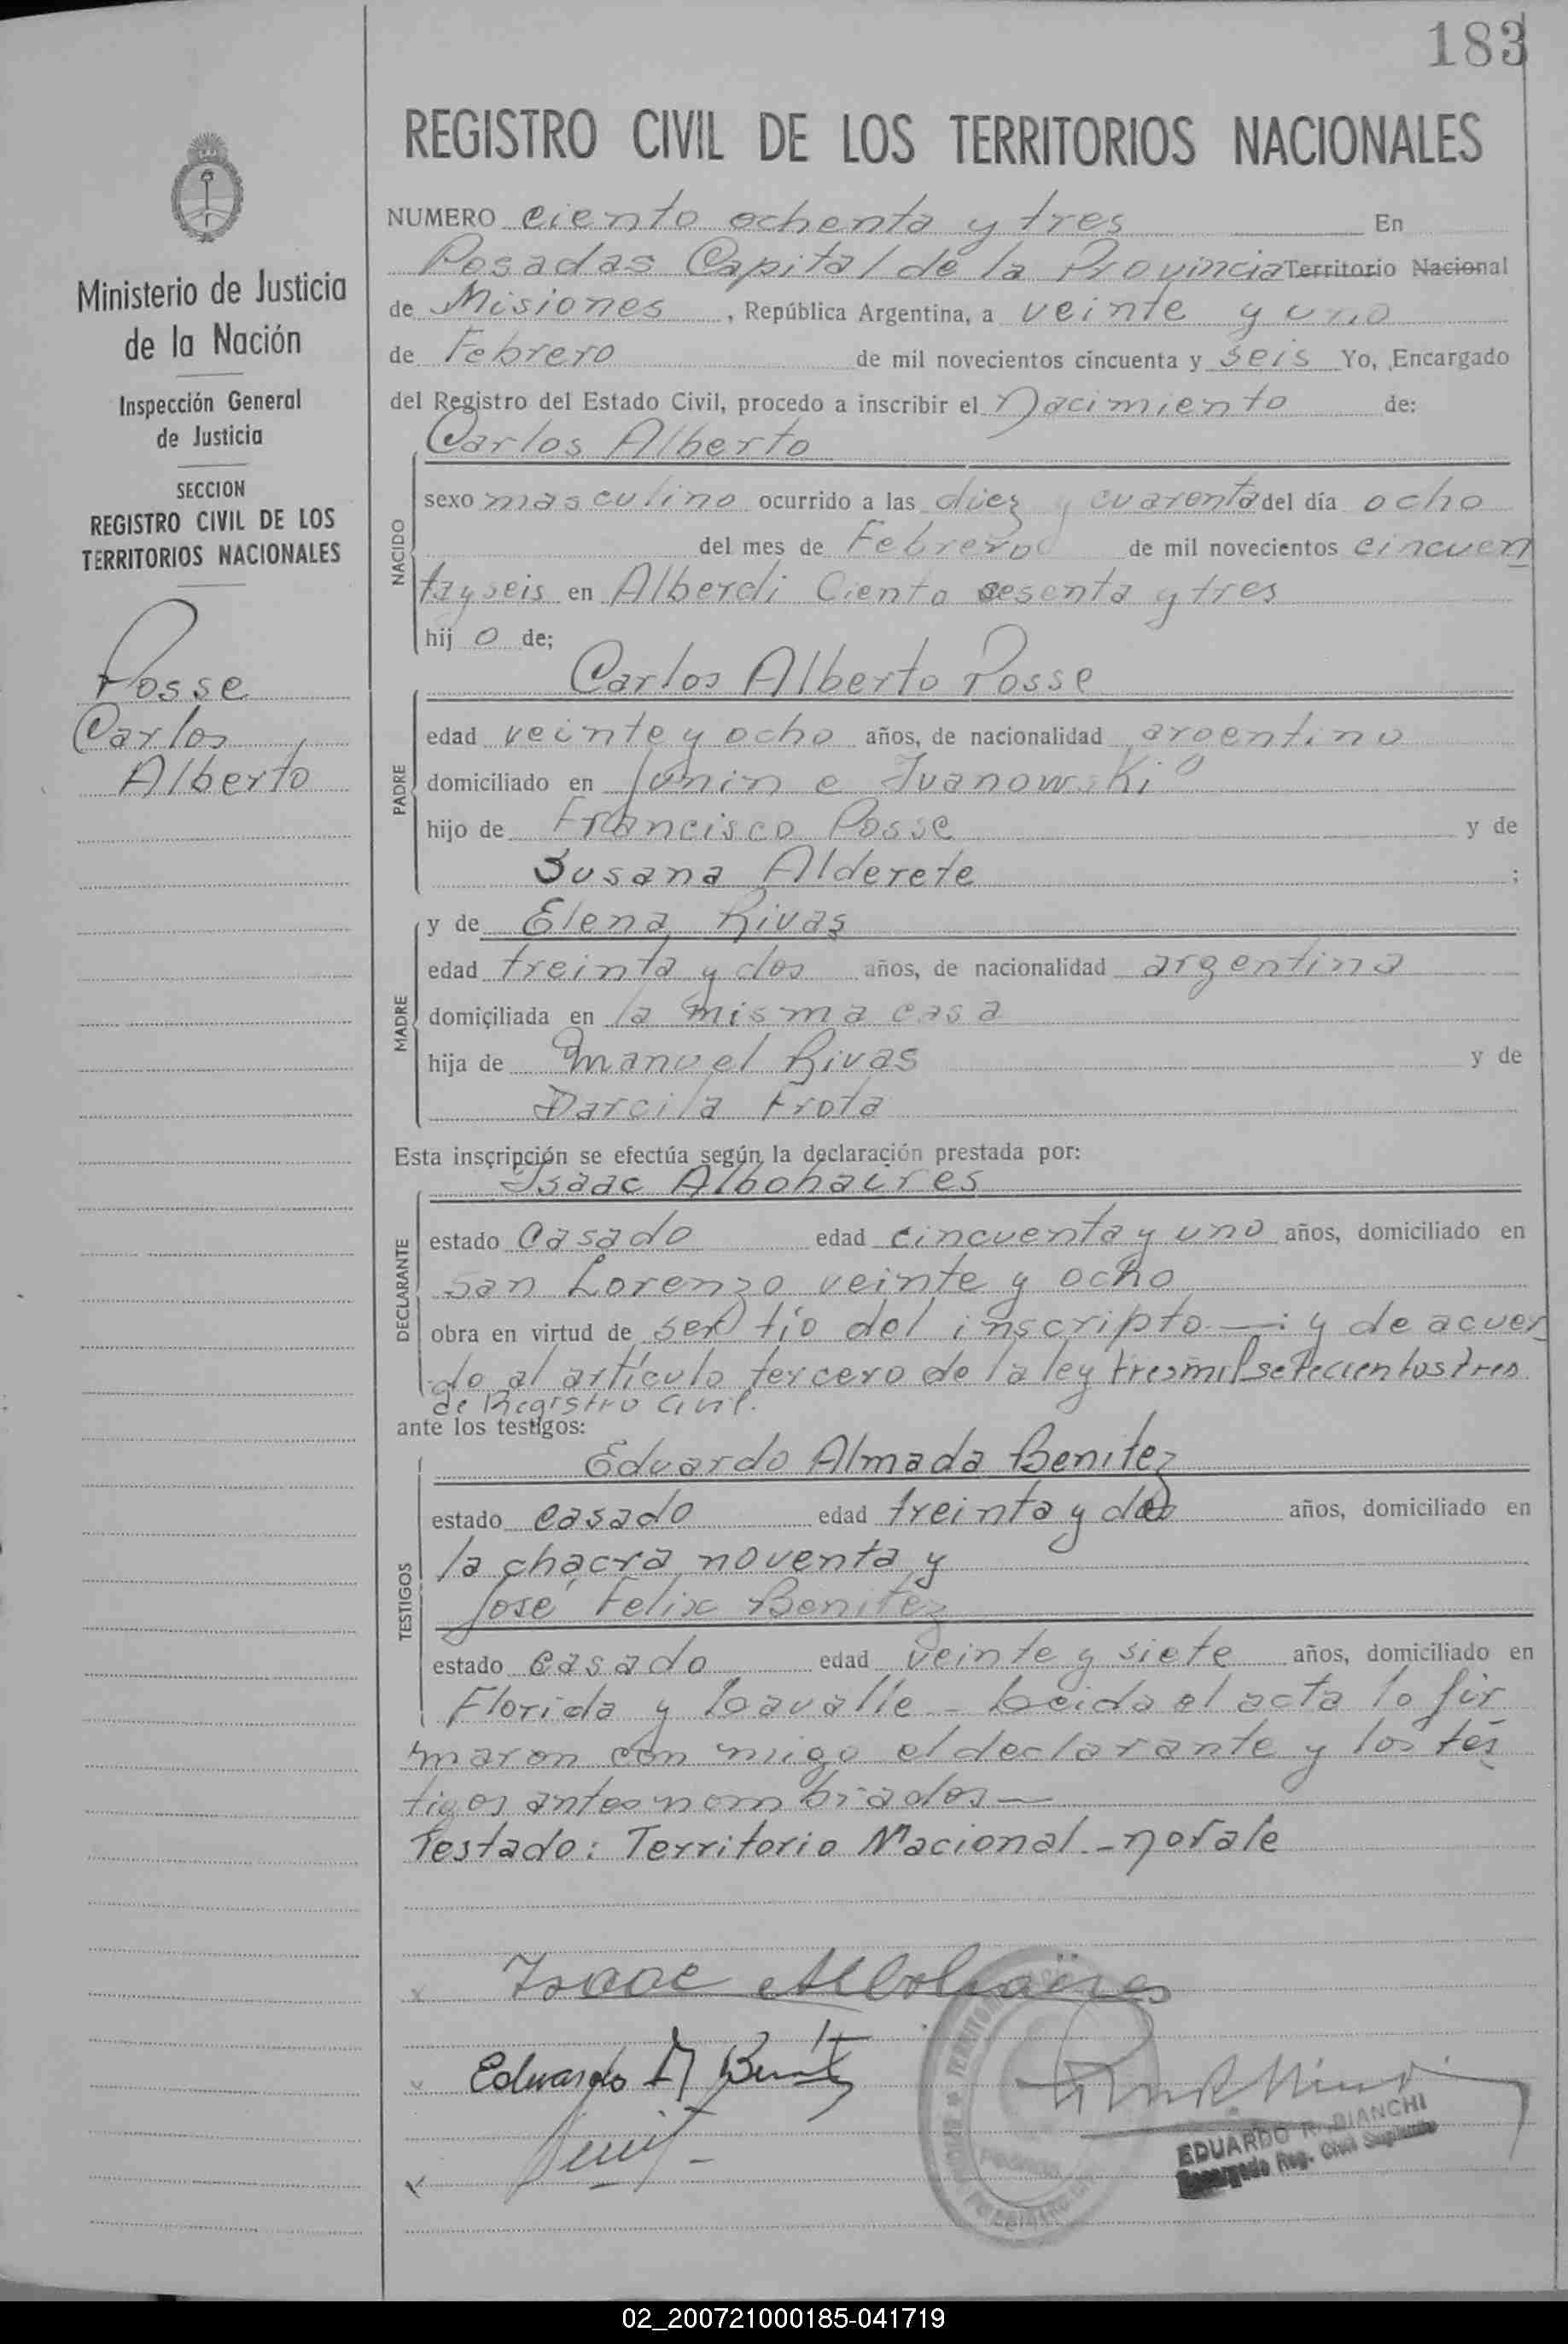 183
REGISTRO CIVIL DE LOS TERRITORIOS NACIONALES
Ministerio de Justicia
de la Nación
Inspección General
de Justicia
SECCION
REGISTRO CIVIL DE LOS
TERRITORIOS NACIONALES
Posse
Carlos
Alberto
NUMERO ciento ochenta y tres En
Posadas Capital de la Provincia Territorio Nacional
de Misiones, República Argentina, a veinte y uno
de Febrero de mil novecientos cincuenta y seis Yo, Encargado
del Registro del Estado Civil, procedo a inscribir el Nacimiento de:
Carlos Alberto
NACIDO
sexo masculino ocurrido a las diez y cuarenta del día ocho
del mes de Febrero de mil novecientos cincuen
ta y seis en Alberdi Ciento sesenta y tres
hij o de;
Carlos Alberto Posse
PADRE
edad veinte y ocho años, de nacionalidad argentino
domiciliado en Junin e Ivanowski
hijo de Francisco Posse y de
Susana Alderete ;
MADRE
y de Elena Rivas
edad treinta y dos años, de nacionalidad argentina
domiciliada en la misma casa
hija de Manuel Rivas y de
Darcila Frota
Esta inscripción se efectúa según la declaración prestada por:
Isaac Albohaires
DECLARANTE
estado casado edad cincuenta y uno años, domiciliado en
San Lorenzo veinte y ocho
obra en virtud de ser tío del inscripto —: y de acuer
do al artículo tercero de la ley tresmil setecientos tres
de Registro Civil.
ante los testigos:
Eduardo Almada Benitez
TESTIGOS
estado casado edad treinta y dos años, domiciliado en
la chacra noventa y
José Felix Benitez
estado casado edad veinte y siete años, domiciliado en
Florida y Lavalle - Leida el acta la fir
maron con migo el declarante y los tes
tigos antes nombrados —
Testado: Territorio Nacional - no vale
Isaac Albohaires
Eduardo A Benitez
EDUARDO R. BIANCHI
Encargado Reg. Civil Suplente
02_200721000185-041719